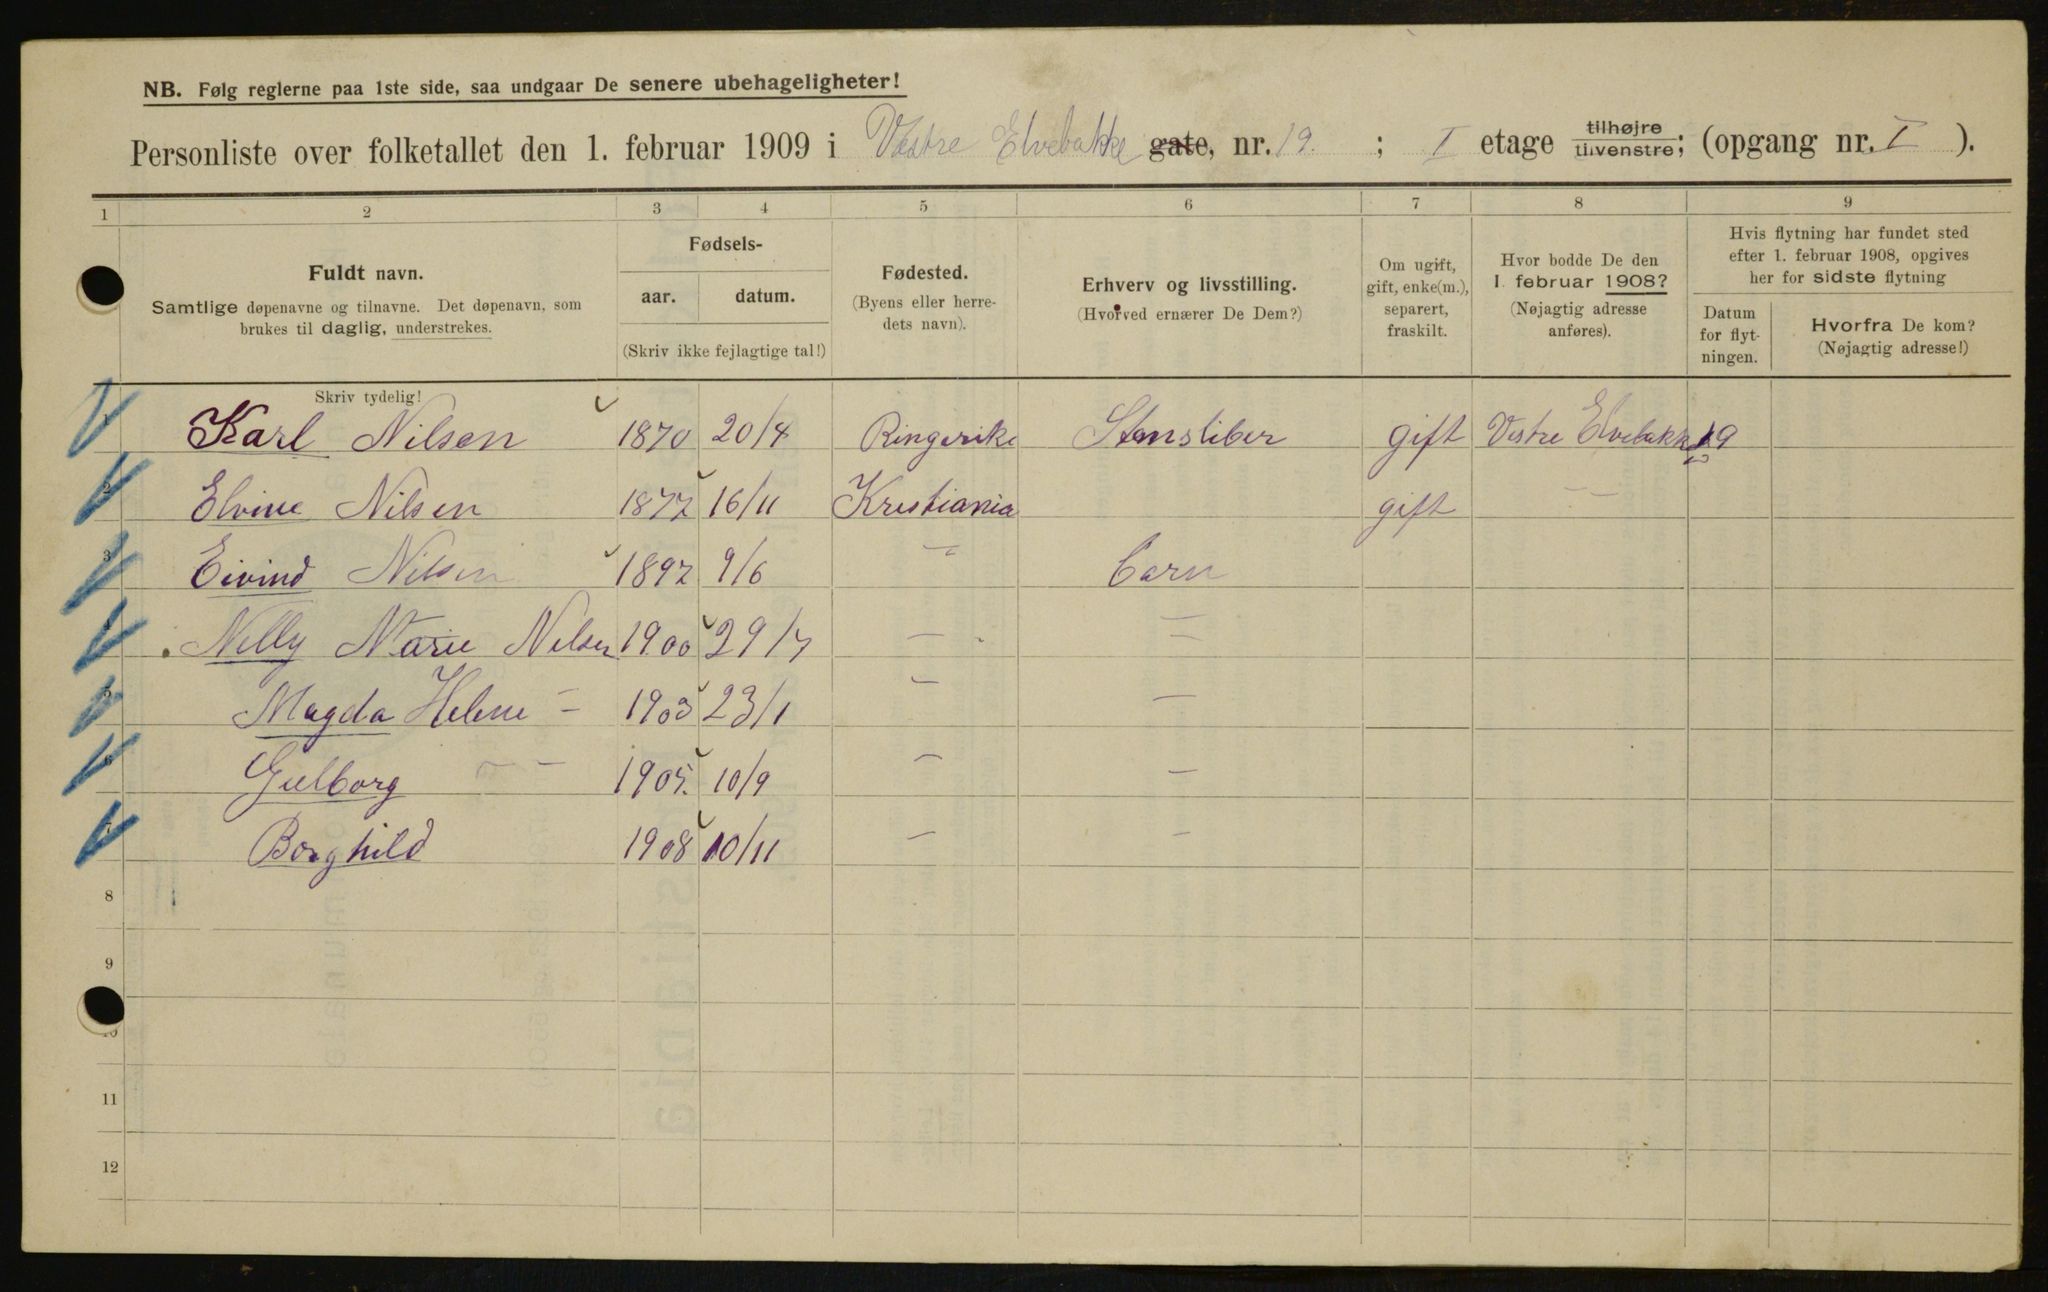 NB. Følg reglerne paa 1ste side, saa undgaar De senere ubehageligheter!
Personliste over folketallet den 1. februar 1909 i Vestre Elvebakke gate, nr. 19. ; I etage tilhøjre tilvenstre; (opgang nr. I ).
1 2 3 4 5 6 7 8 9
Fuldt navn.
Samtlige døpenavne og tilnavne. Det døpenavn, som
brukes til daglig, understrekes.
Skriv tydelig!
Fødsels-
aar. datum.
(Skriv ikke fejlagtige tal!)
Fødested.
(Byens eller herre-
dets navn).
Erhverv og livsstilling.
(Hvorved ernærer De Dem?)
Om ugift,
gift, enke(m.),
separert,
fraskilt.
Hvor bodde De den
1. februar 1908?
(Nøjagtig adresse
anføres).
Hvis flytning har fundet sted
efter 1. februar 1908, opgives
her for sidste flytning
Datum
for flyt-
ningen.
Hvorfra De kom?
(Nøjagtig adresse!)
1 Karl Nilsen 1870 20/4 Ringerike Stensliber gift Vestre Elvebakke 19
2 Elvine Nilsen 1877 16/11 Kristiania gift – –
3 Eivind Nilsen 1897 9/6 – Barn
4 Nelly Marie Nilsen 1900 29/7 – –
5 Magda Helene – 1903 23/1 – –
6 Gulborg – – 1905. 10/9 – –
7 Borghild 1908 10/11 – –
8
9
10
11
12